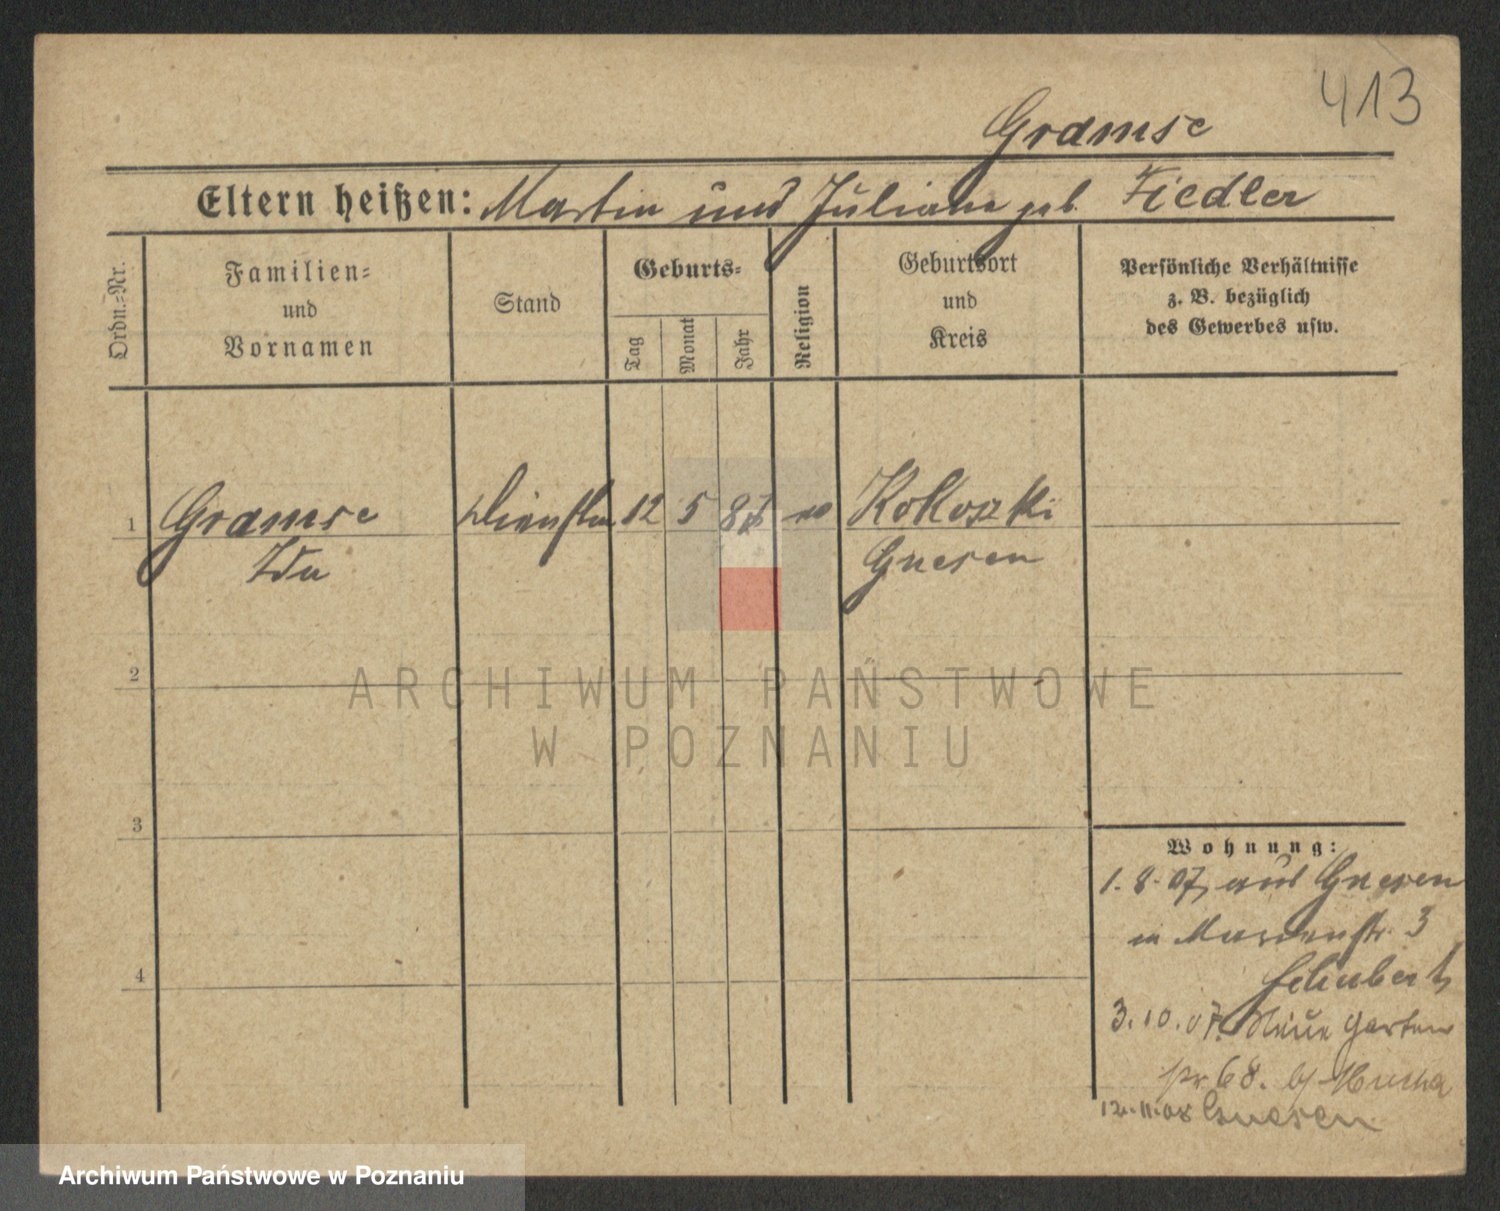 413
Gramse
Eltern heißen: Martin und Juliane geb. Fiedler
Ordn.-Nr.
Familien-
und
Vornamen
Stand
Geburts-
Tag
Monat
Jahr
Religion
Geburtsort
und
Kreis
Persönliche Verhältnisse
z. B. bezüglich
des Gewerbes usw.
1 Gramse 12 5 87 Kokoszki
Ida Gnesen
2
ARCHIWUM PAŃSTWOWE
W POZNANIU
3
Wohnung:
1.8.07, aus Gnesen
in Marienstr. 3
Schubert
4
3.10.07. Neue Garten
68.
12.11.08 Gnesen
Archiwum Państwowe w Poznaniu